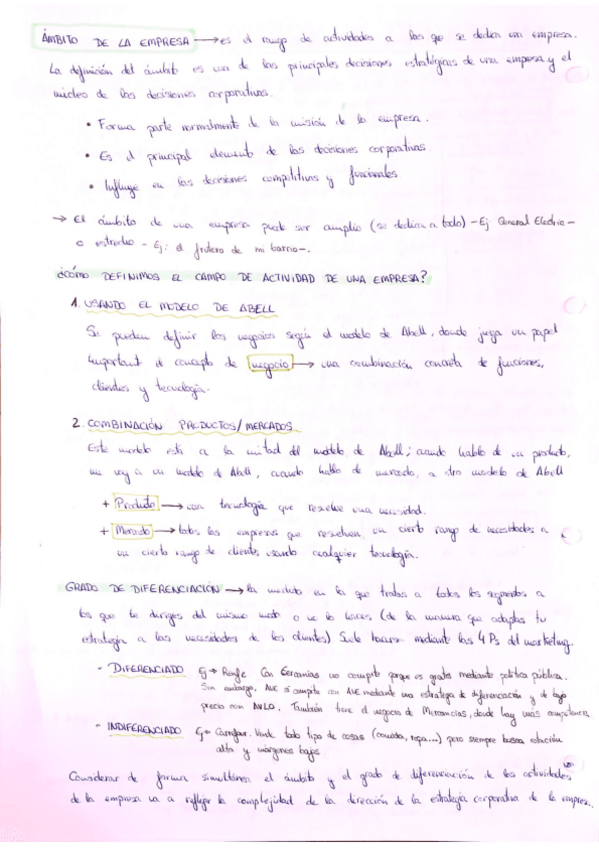 ÁMBITO DE LA EMPRESA → es el rango de actividades a las que se dedica una empresa.
La definición del ámbito es una de las principales decisiones estratégicas de una empresa y el
núcleo de las decisiones corporativas.
• Forma parte normalmente de la misión de la empresa.
• Es el principal elemento de las decisiones corporativas
• Influye en las decisiones competitivas y funcionales
→ El ámbito de una empresa puede ser amplio (se dedica a todo) - Ej General Electric -
o estrecho - Ej: el frutero de mi barrio -.
¿CÓMO DEFINIMOS EL CAMPO DE ACTIVIDAD DE UNA EMPRESA?
1. USANDO EL MODELO DE ABELL
Se pueden definir los negocios según el modelo de Abell, donde juega un papel
important el concepto de negocio → una combinación concreta de funciones,
clientes y tecnología.
2. COMBINACIÓN PRODUCTOS/MERCADOS
Este modelo está a la mitad del modelo de Abell; cuando hablo de un producto,
me voy a un modelo de Abell, cuando hablo de mercado, a otro modelo de Abell
+ Producto → una tecnología que resuelve una necesidad.
+ Mercado → todas las empresas que resuelven un cierto rango de necesidades a
un cierto rango de clientes usando cualquier tecnología.
GRADO DE DIFERENCIACIÓN → la medida en la que tratas a todos los segmentos a
los que te diriges del mismo modo o no lo haces (de la manera que adaptas tu
estrategia a las necesidades de los clientes) Suele hacerse mediante las 4 Ps del marketing.
- DIFERENCIADO Ej → Renfe. Con Cercanías no compite porque es gratis mediante política pública.
Sin embargo, AVE sí compite con AVE mediante una estrategia de diferenciación y de bajo
precio con AVLO. También tiene el negocio de Mercancías, donde hay más competencia
- INDIFERENCIADO Ej → Carrefour. Vende todo tipo de cosas (comida, ropa...) pero siempre busca rotación
alta y márgenes bajos
Considerar de forma simultánea el ámbito y el grado de diferenciación de las actividades
de la empresa va a reflejar la complejidad de la dirección de la estrategia corporativa de la empresa.